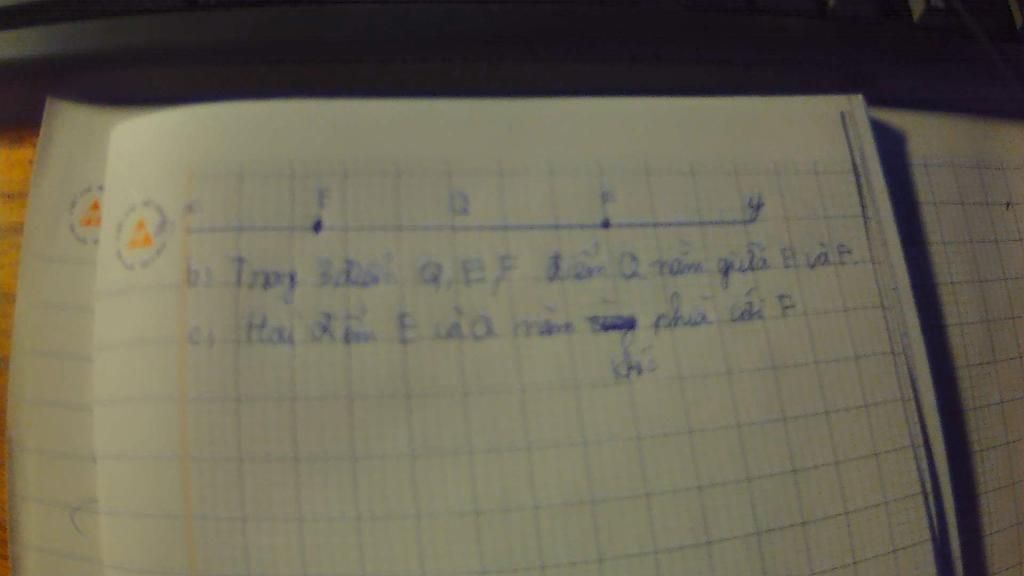 E Q F y
b) Trong 3 điểm Q, E, F điểm Q nằm giữa E và F.
c) Hai điểm E và Q nằm phía với F